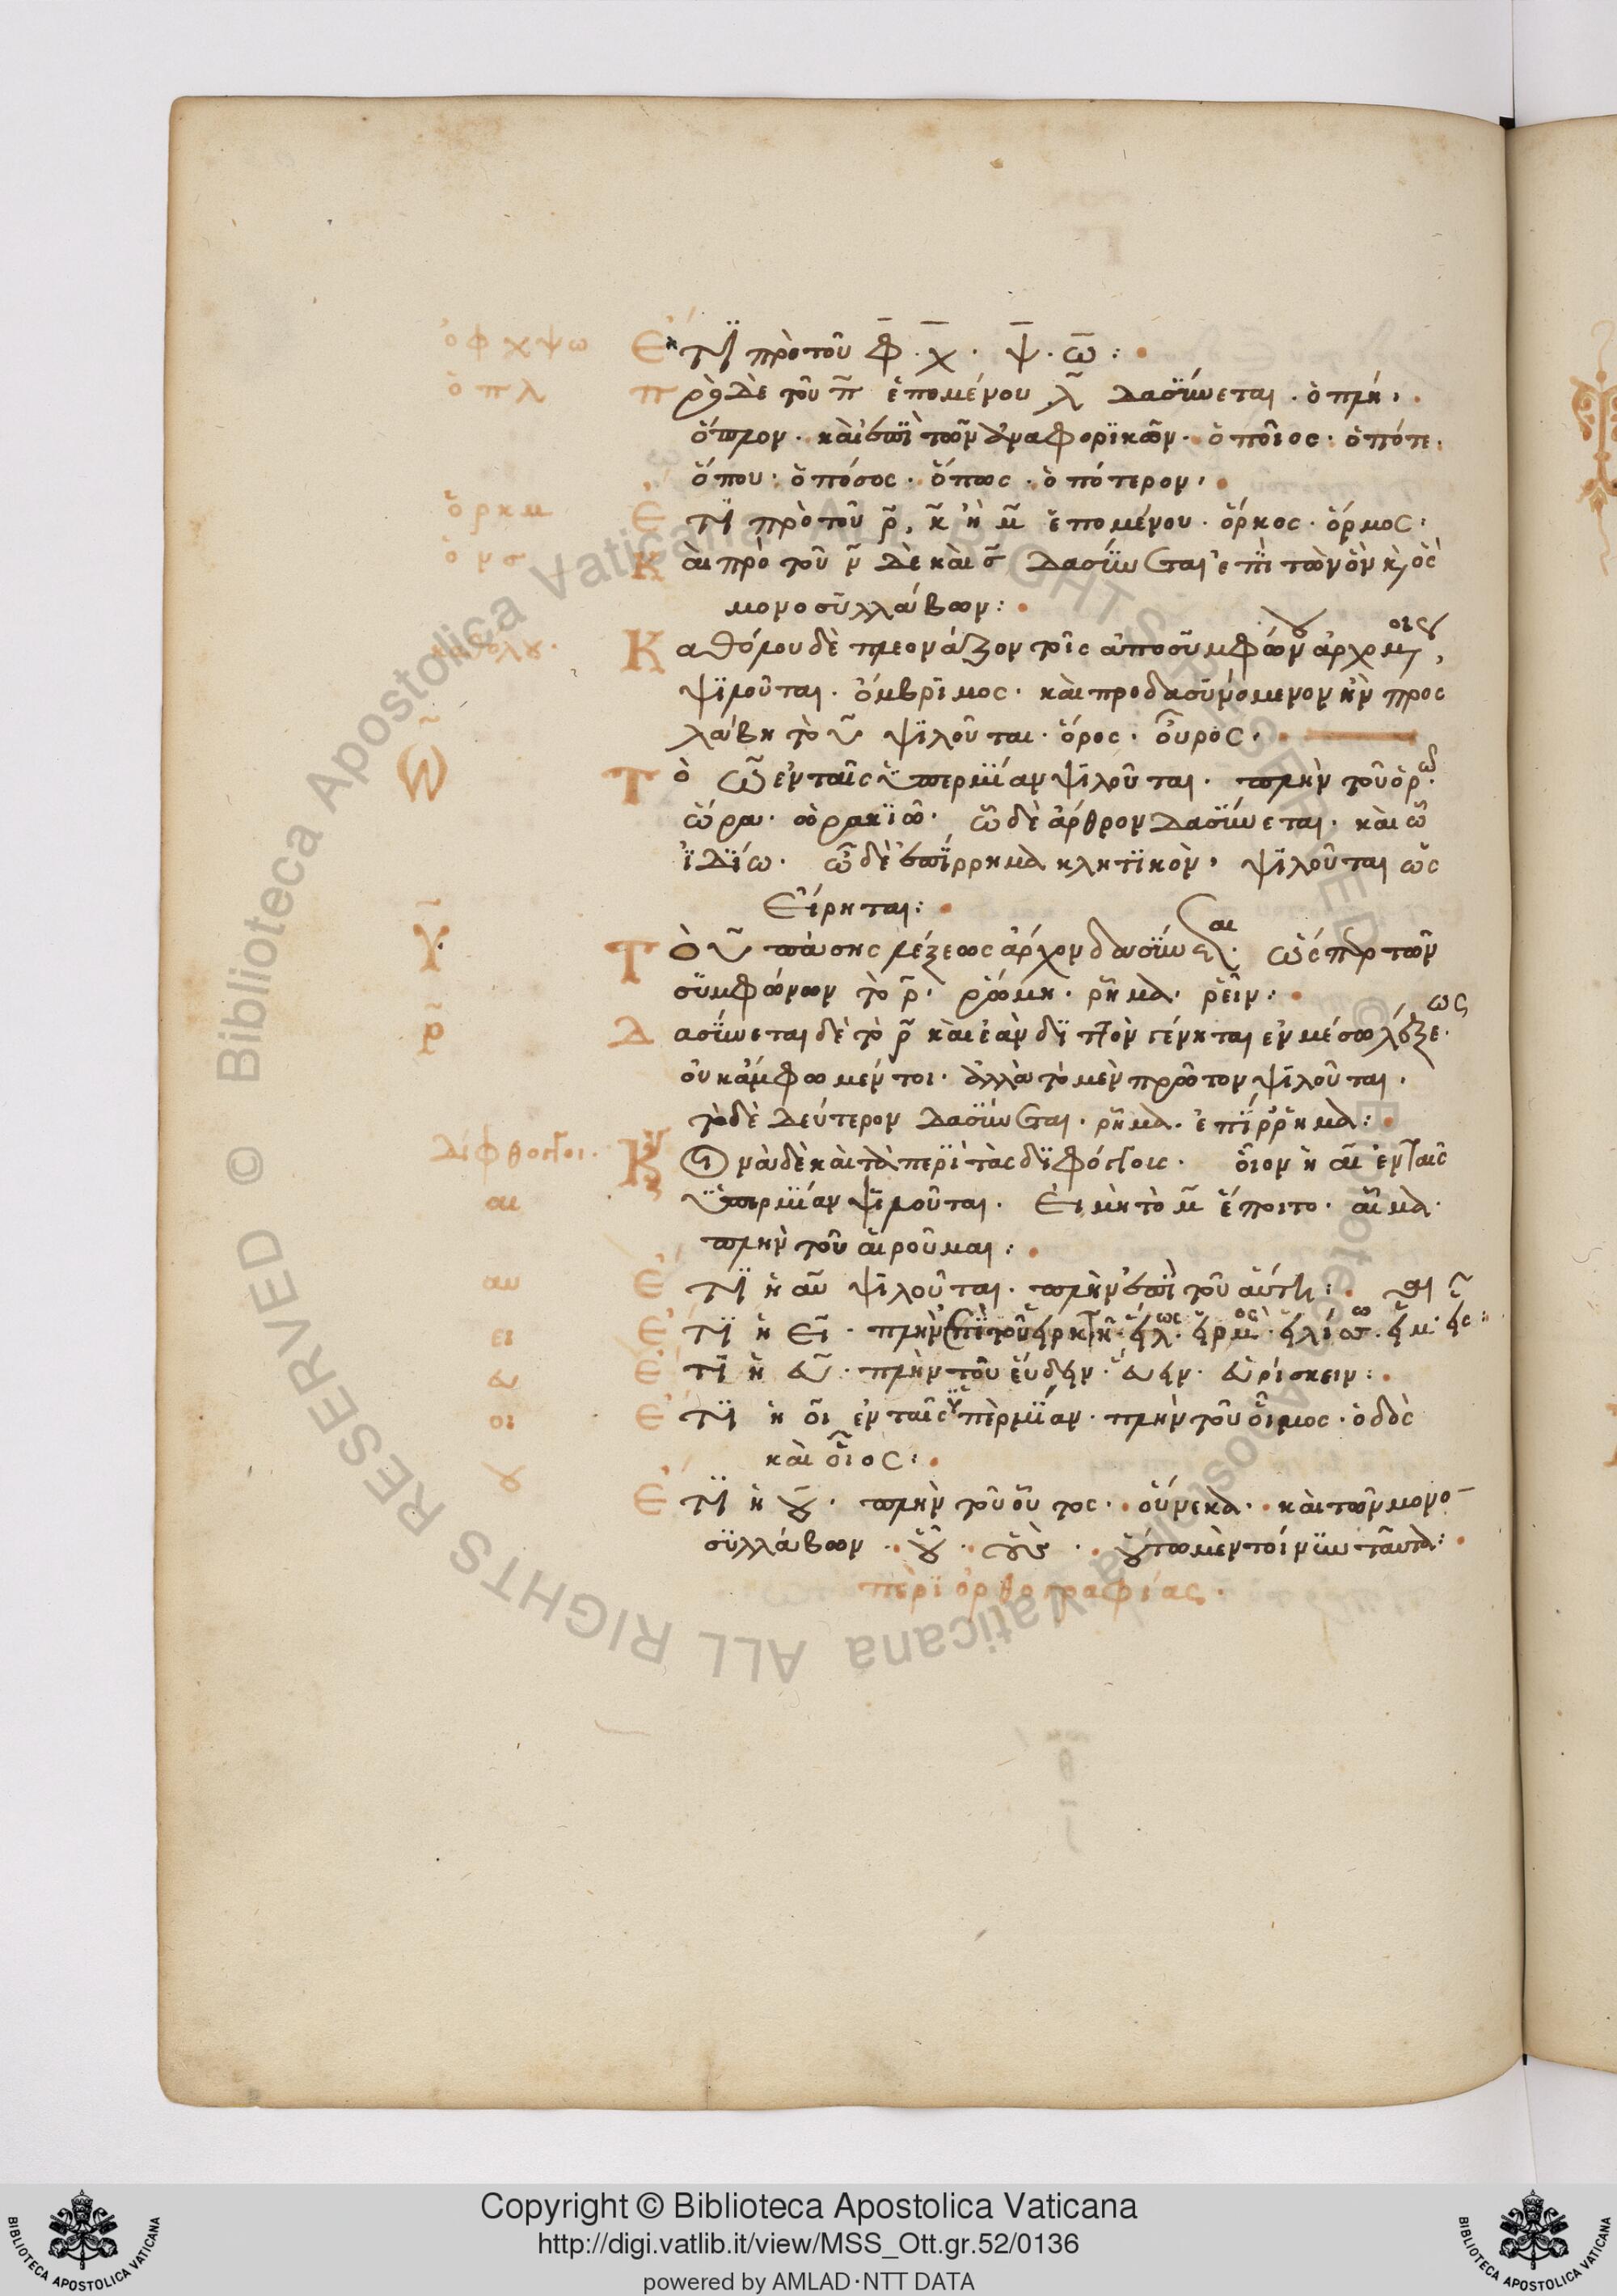 ὁ φ χ ψ ω
Ἔτι πρὸ τοῦ φ̄. χ̄. ψ̄. ω̄:
ὁ π λ
πρὸ δὲ τοῦ π̄ ἑπομένου λ̄ δασύνεται. ὁπλή.
ὅπλον. καὶ ἐπὶ τῶν ἀναφορϊκῶν. ὁποῖος. ὁπότε.
ὅπου. ὁπόσος. ὅπως. ὁπότερον.
ὅ ρ κ μ
Ἔτι πρὸ τοῦ ρ̄, κ̄ ἢ μ̄ ἑπομένου. ὅρκος. ὅρμος:
ὁ ν σ
Καὶ πρὸ τοῦ ν̄ δὲ καὶ σ̄ δασύνεται ἐπὶ τῶν ὃν κ ὃς
μονοσυλλάβων:
καθόλου.
Καθόλου δὲ πλεονάζον τοῖς ἀπὸ συμφώνου ἀρχομένοις,
ψϊλοῦται. ὄμβρϊμος. καὶ προδασυνόμενον κἂν προς
λάβη τὸ ῡ ψϊλοῦται. ὅρος. οὖρος.
ω̄
Τὸ ω̄ ἐν ταῖς ὑπερμίαν ψϊλοῦται. πλὴν τοῦ
ὥρα. ὡρακϊῶ. ὦ δὲ ἄρθρον δασύνεται. καὶ ὦ
ἰδϊίω. ὦ δὲ ἐπίρρημα κλητϊκὸν, ψϊλοῦται ὡς
Εἴρηται:
ῡ
Τὸ ῡ πάσης λέξεως ἄρχον δασύνεται. ὥσπερ τῶν
συμφώνων τὸ ρ̄. ῥώμη. ῥῆμα. ῥεῖν:
ρ̄
Δασύνεται δὲ τὸ ρ̄ καὶ ἐὰν δϊπλὸν γένηται ἐν μέσω λέξεως.
οὐκ ἄμφω μέντοι. ἀλλὰ τὸ μὲν πρῶτον ψϊλοῦται.
τὸ δὲ δεύτερον δασύνεται. ῥῆμα. ἐπίρρημα:
Δίφθογγοι.
νὰ δὲ καὶ τὰ περὶ τὰς δϊφθόγγους. οἷον ἡ αῑ ἐν ταῖς
αι
ὑπερμίαν ψϊλοῦται. Εἰ μὴ τὸ μ̄ ἕποιτο. αἷμα.
πλὴν τοῦ αἱροῦμαι:
αυ
Ἔτι ἡ αῡ ψϊλοῦται. πλὴν ἐπὶ τοῦ
ει
Ἔτι ἡ εῑ. πλὴν ἐπὶ τοῦ
ευ
Ἔτι ἡ εῡ. πλὴν τοῦ εὕδειν. εὕειν. εὑρίσκειν:
οι
Ἔτι ἡ οῑ ἐν ταῖς ὑπὲρμίαν. πλὴν τοῦ οἷμος. ὁδὸς
καὶ οἷος:
ου
Ἔτι ἡ οῡ. πλὴν τοῦ οὗτος. οὕνεκα. καὶ τῶν μονο
συλλάβων. οὗ. οὓς. οὕτω μὲν τοίνυν ταῦτα:
πὲρϊ ὀρθογραφίας.
Copyright © Biblioteca Apostolica Vaticana
http://digi.vatlib.it/view/MSS_Ott.gr.52/0136
powered by AMLAD·NTT DATA
BIBLIOTECA APOSTOLICA VATICANA
BIBLIOTECA APOSTOLICA VATICANA
© Biblioteca Apostolica Vaticana ALL RIGHTS RESERVED
© Biblioteca Apostolica Vaticana ALL RIGHTS RESERVED